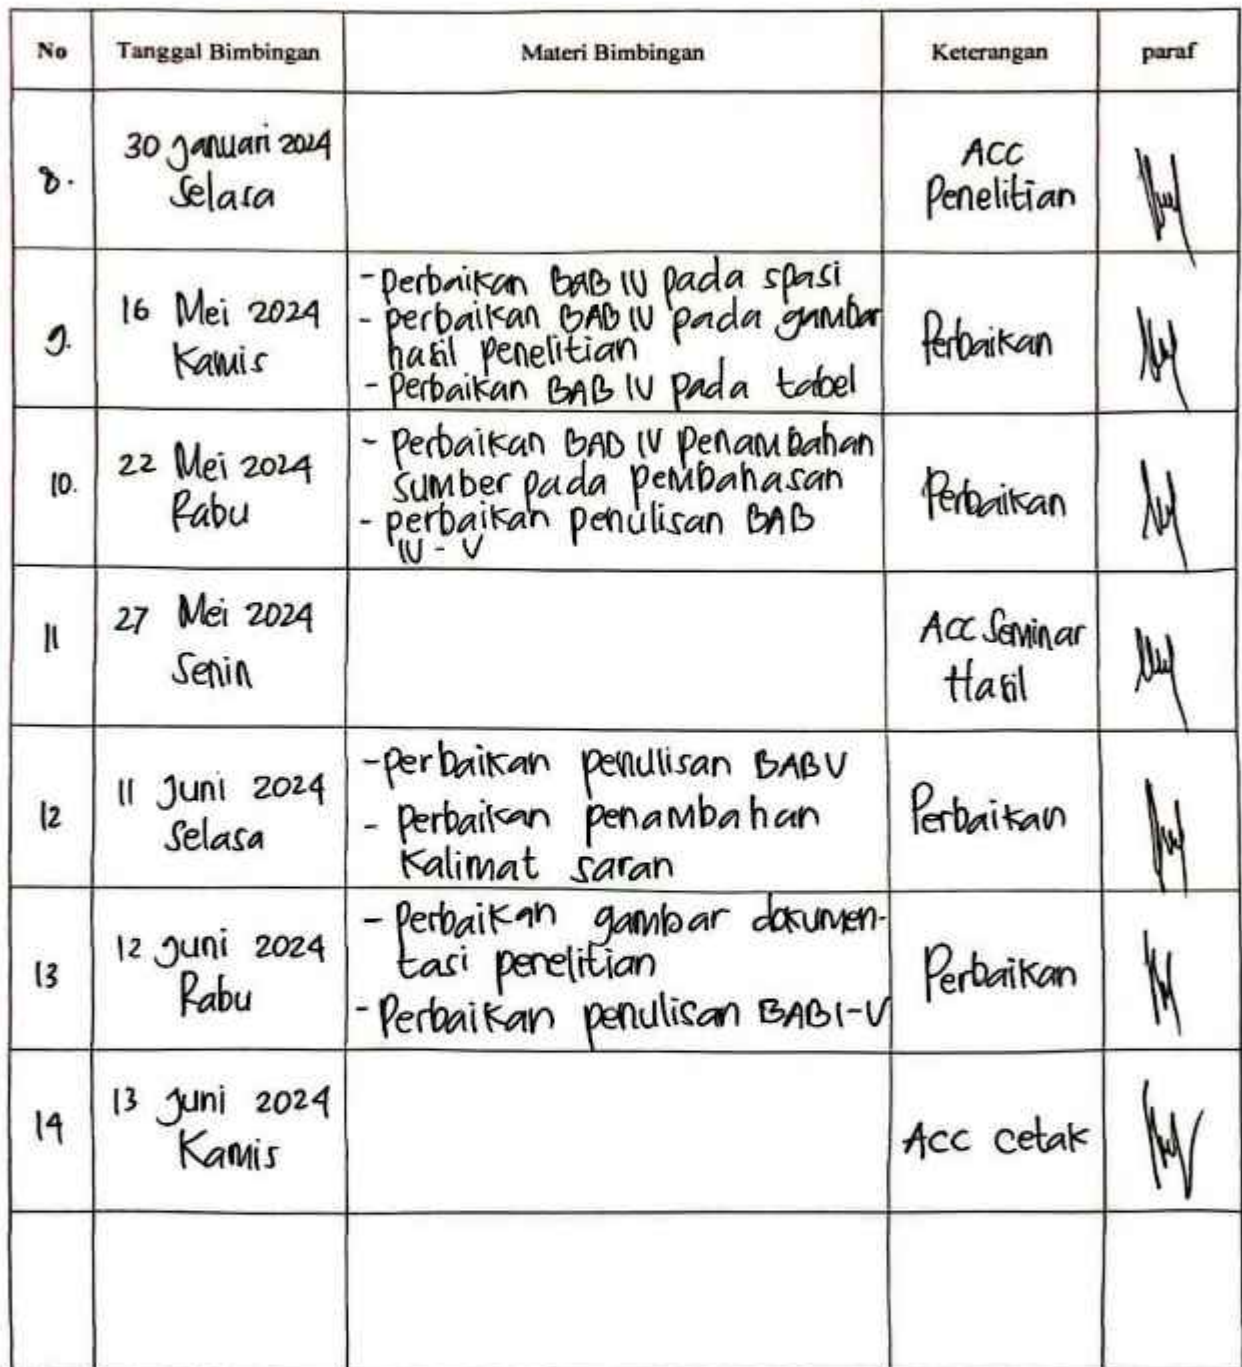 No Tanggal Bimbingan Materi Bimbingan Keterangan paraf
8.
30 Januari 2024
Selasa
ACC
Penelitian
9.
16 Mei 2024
Kamis
- Perbaikan BAB IV pada spasi
- perbaikan BAB IV pada gambar
hasil penelitian
- Perbaikan BAB IV pada tabel
Perbaikan
10.
22 Mei 2024
Rabu
- Perbaikan BAB IV penambahan
sumber pada pembahasan
- perbaikan penulisan BAB
IV - V
Perbaikan
11
27 Mei 2024
Senin
Acc Seminar
Hasil
12
11 Juni 2024
Selasa
- perbaikan penulisan BAB V
- Perbaikan penambahan
Kalimat saran
Perbaikan
13
12 Juni 2024
Rabu
- Perbaikan gambar dokumen-
tasi penelitian
- Perbaikan penulisan BAB I-V
Perbaikan
14
13 Juni 2024
Kamis
Acc cetak